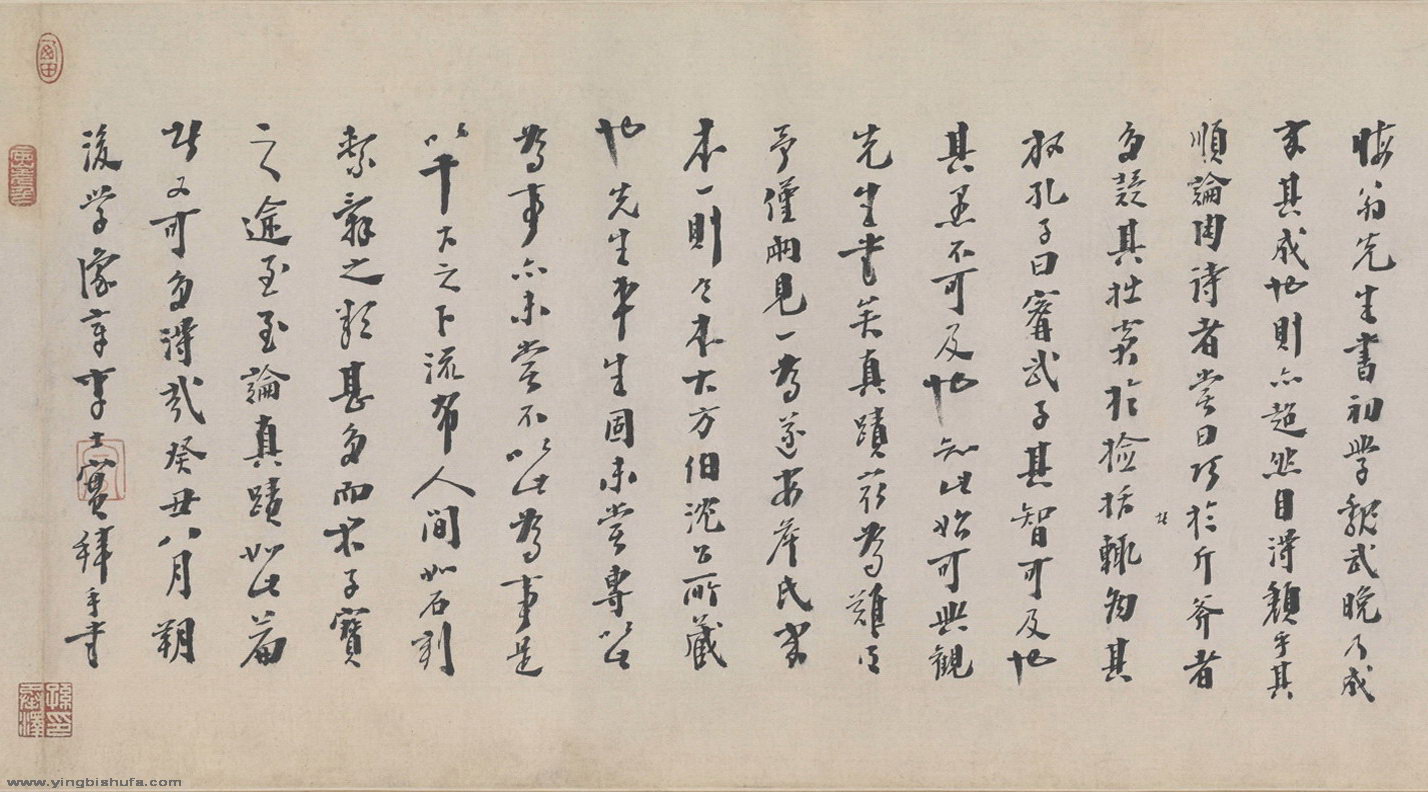 晦翁先生書初學魏武晚乃成
家其成也則亦超然自得頹乎其
順論陶詩者嘗曰巧於斤斧者
多疑其拙窘於檢括輒病其
放孔子曰甯武子其智可及也
其愚不可及也知此始可與觀
先生書矣真蹟最為難得
予僅兩見一為遂安詹氏家
本一則今本大方伯沈公所藏
也先生平生固未嘗專以此
為事亦未嘗不以此為事是
以千百之下流布人間如石刻
繫辭之類甚多而本子寶
之途至至論真蹟如此篇
者又可多得哉癸丑八月朔
後學豫章李士實拜手書
孫印承澤
www.yingbishufa.com